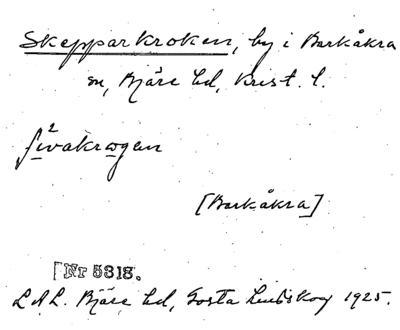 Skepparkroken, by i Barkåkra
sn, Bjäre hd, Krist. l.
[Barkåkra]
[Nr 5818.
L A L. Bjäre hd, Gösta 1925.